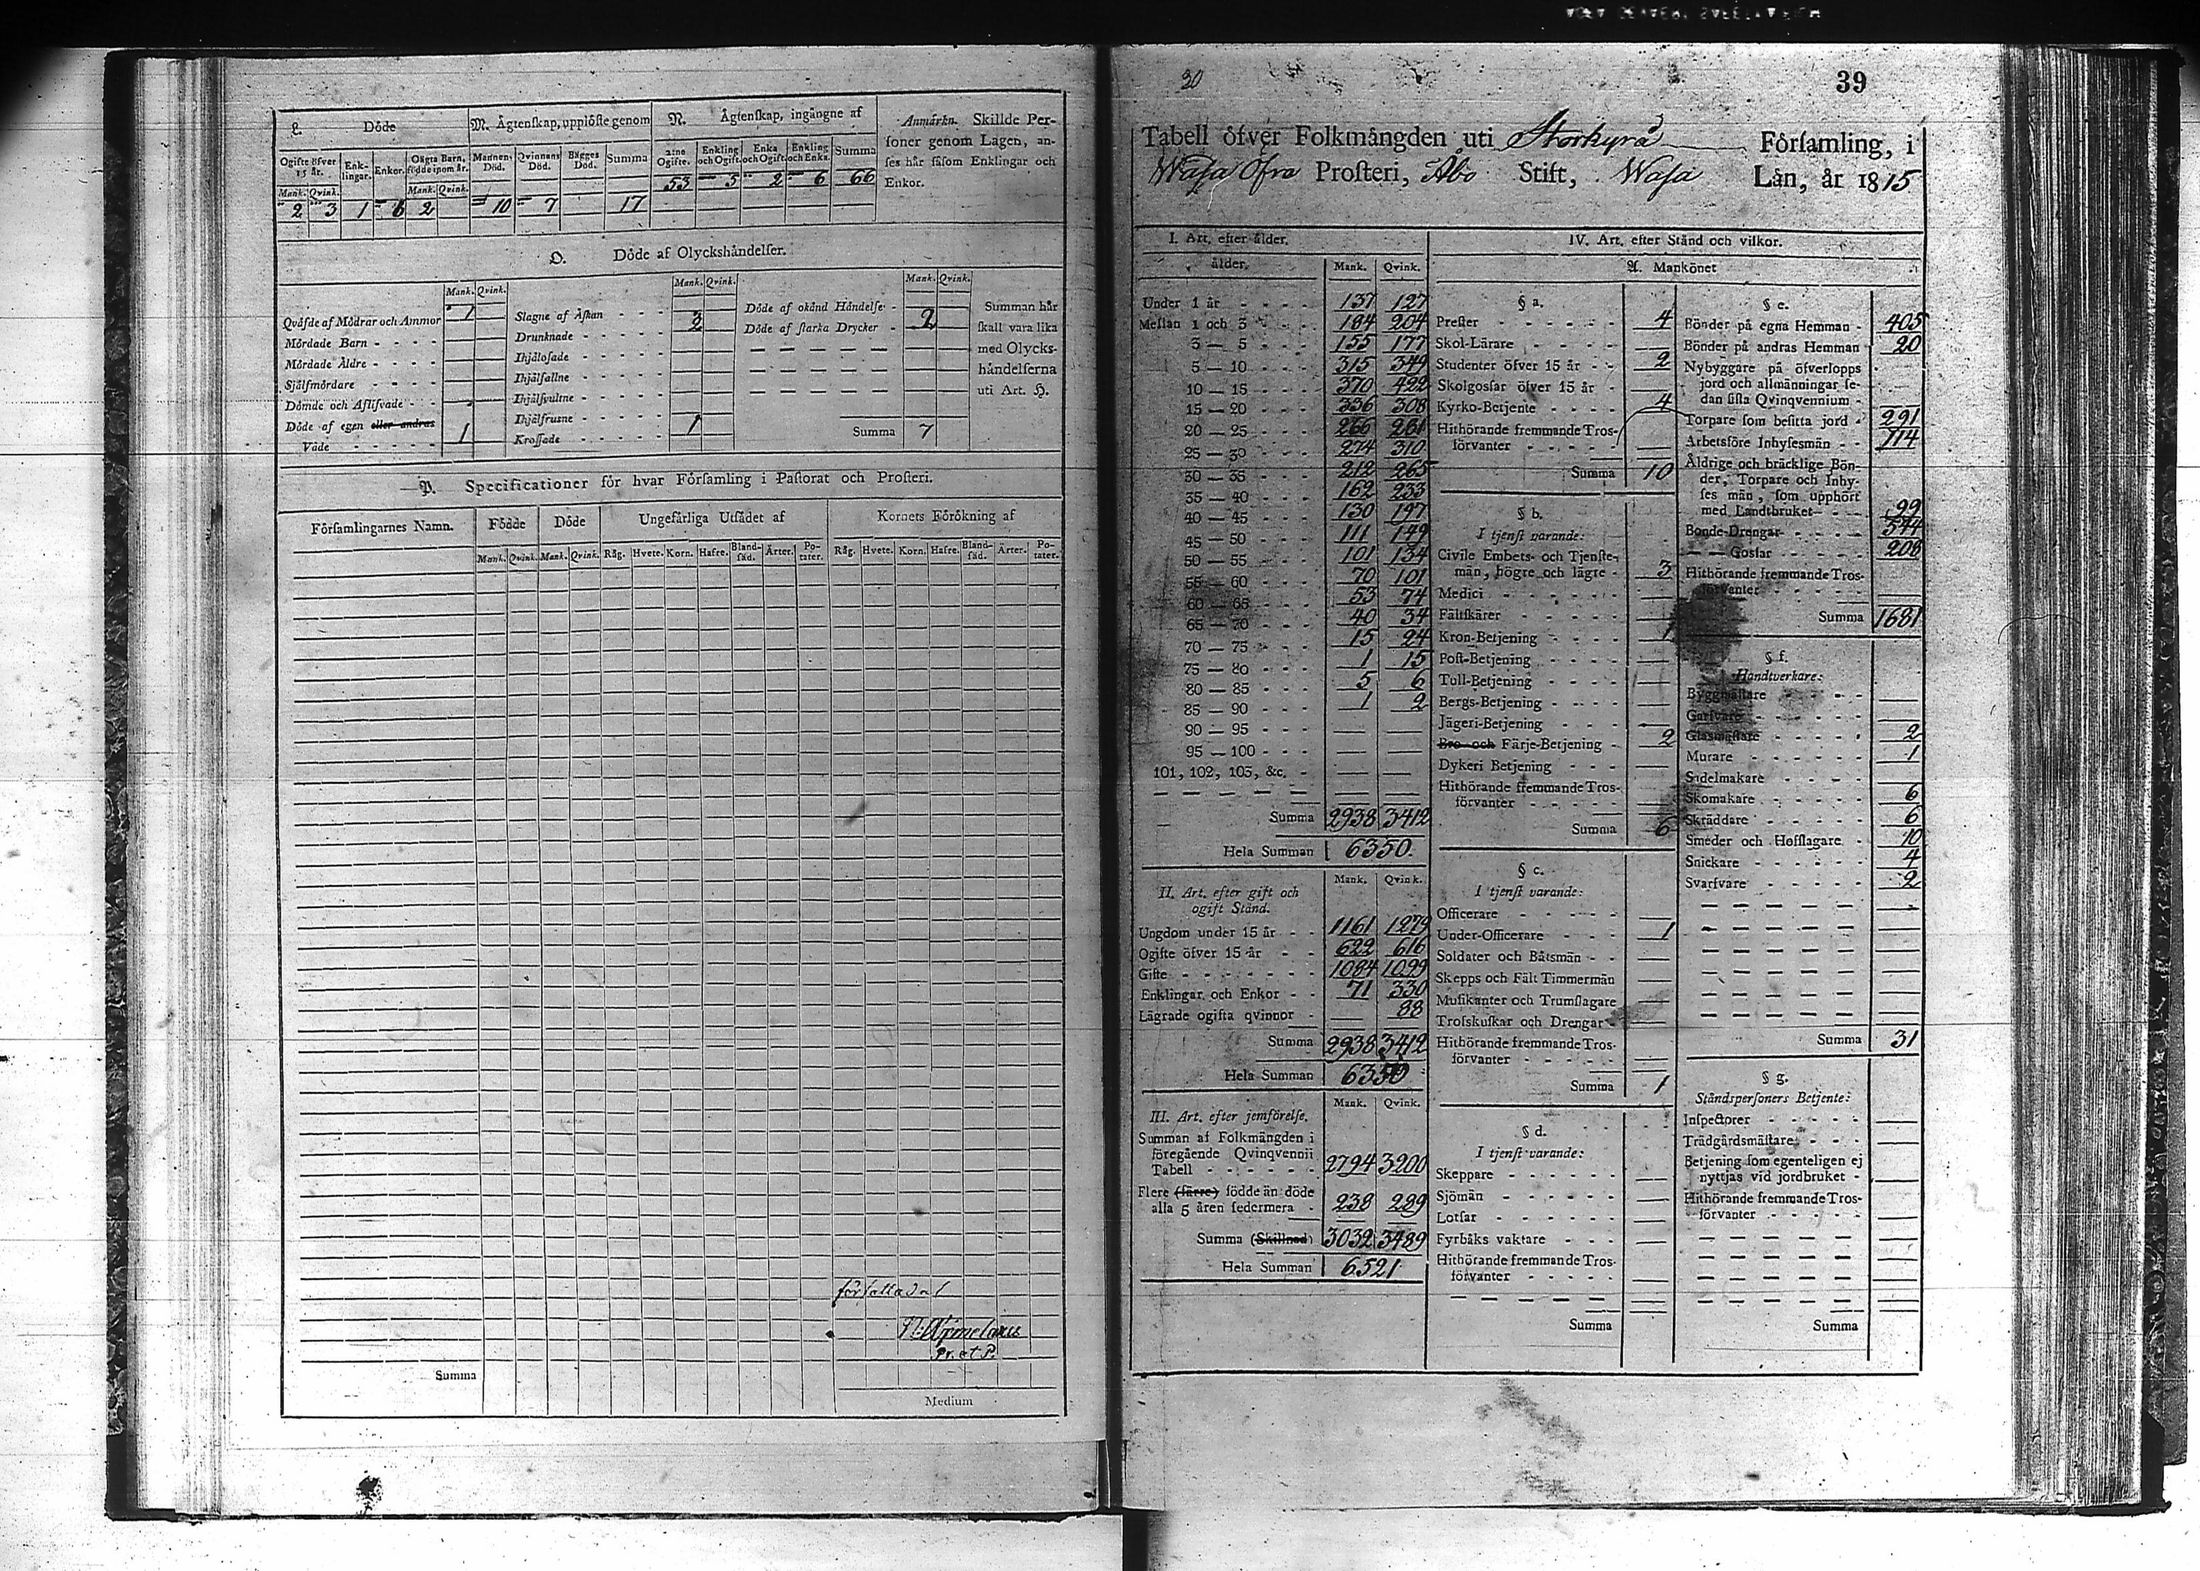 L. Döde
M. Ägtenſkap, upplöſte genom
N. Ägtenſkap, ingångne af
Anmärkn. Skillde Per-
ſoner genom Lagen, an-
ſes här ſåſom Enklingar och
Enkor.
Ogifte öfver 15 år.
Enk-lingar.
Enkor.
Oägta Barn, födde inom år.
Mannens Död.
Qvinnans Död.
Bägges Död.
Summa
2:ne Ogifte.
Enkling och Ogift.
Enka och Ogift.
Enkling och Enka.
Summa
53 3 2 6 66
Mank. Qvink. Mank. Qvink.
2 3 1 6 2 10 7 17
O. Döde af Olyckshändelſer.
Mank. Qvink. Mank. Qvink. Mank. Qvink.
Qväfde af Mödrar och Ammor 1
Mördade Barn
Mördade Äldre
Själfmördare
Dömde och Aflifvade
Döde af egen eller andras
Våde 1
Slagne af Åſkan
Drunknade 2
Ihjälofade
Ihjälfallne
Ihjälſvultne
Ihjälfrusne
Kroſſade 1
Döde af okänd Händelſe
Döde af ſtarka Drycker 2
Summa 7
Summan här
ſkall vara lika
med Olycks-
händelſerna
uti Art. H.
P. Specificationer för hvar Förſamling i Paſtorat och Proſteri.
Förſamlingarnes Namn. Födde Döde Ungefärliga Utſädet af Kornets Förökning af
Mank. Qvink. Mank. Qvink. Råg. Hvete. Korn. Hafre. Bland-ſäd. Ärter. Po-tater. Råg. Hvete. Korn. Hafre. Bland-ſäd. Ärter. Po-tater.
författad af
Pr. et P.
Summa
Medium
30
39
Tabell öfver Folkmängden uti Storkyrå Förſamling, i
Waſa Öfra Proſteri, Åbo Stift, Waſa Län, år 1815
I. Art. efter ålder.
ålder. Mank. Qvink.
Under 1 år 137 127
Mellan 1 och 3 184 204
3 — 5 155 177
5 — 10 315 349
10 — 15 370 422
15 — 20 336 308
20 — 25 266 261
25 — 30 274 310
30 — 35 212 265
35 — 40 162 233
40 — 45 130 197
45 — 50 111 149
50 — 55 101 134
55 — 60 70 101
60 — 65 53 74
65 — 70 40 34
70 — 75 15 24
75 — 80 1 15
80 — 85 5 6
85 — 90 1 2
90 — 95
95 — 100
101, 102, 103, &c.
Summa 2938 3412
Hela Summan 6350.
II. Art. efter gift och
ogift Stånd.
Mank. Qvink.
Ungdom under 15 år 1161 1279
Ogifte öfver 15 år 622 616
Gifte 1084 1099
Enklingar och Enkor 71 330
Lägrade ogifta qvinnor 88
Summa 2938 3412
Hela Summan 6350
III. Art. efter jemförelſe.
Mank. Qvink.
Summan af Folkmängden i
föregående Qvinqvennii
Tabell 2794 3200
Flere (färre) födde än döde
alla 5 åren ſedermera 238 289
Summa (Skillnad) 3032 3489
Hela Summan 6521
IV. Art. efter Stånd och vilkor.
A. Mankönet
§ a.
Preſter 4
Skol-Lärare
Studenter öfver 15 år 2
Skolgoſſar öfver 15 år
Kyrko-Betjente 4
Hithörande fremmande Tros-
förvanter
Summa 10
§ b.
I tjenſt varande:
Civile Embets- och Tjenſte-
män, högre och lägre 3
Medici
Fältſkärer
Kron-Betjening 1
Poſt-Betjening
Tull-Betjening
Bergs-Betjening
Jägeri-Betjening
Bro- och Färje-Betjening 2
Dykeri Betjening
Hithörande fremmande Tros-
förvanter
Summa 6
§ c.
I tjenſt varande:
Officerare
Under-Officerare 1
Soldater och Båtsmän
Skepps och Fält Timmermän
Muſikanter och Trumſlagare
Troſskuſkar och Drengar
Hithörande fremmande Tros-
förvanter
Summa 1
§ d.
I tjenſt varande:
Skeppare
Sjömän
Lotſar
Fyrbåks vaktare
Hithörande fremmande Tros-
förvanter
Summa
§ e.
Bönder på egna Hemman 405
Bönder på andras Hemman 20
Nybyggare på öfverlopps
jord och allmänningar ſe-
dan ſiſta Qvinqvennium
Torpare ſom beſitta jord 291
Arbetsföre Inhyſesmän 114
Åldrige och bräcklige Bön-
der, Torpare och Inhy-
ſes män, ſom upphört
med Landtbruket 99
Bonde-Drengar 544
— — Goſſar 208
Hithörande fremmande Tros-
förvanter
Summa 1681
§ f.
Handtverkare:
Byggmäſtare
Garfvare
Glasmäſtare 2
Murare 1
Sadelmakare
Skomakare 6
Skräddare 6
Smeder och Hofſlagare 10
Snickare 4
Svarfvare 2
Summa 31
§ g.
Ståndsperſoners Betjente:
Inſpectorer
Trädgårdsmäſtare
Betjening ſom egenteligen ej
nyttjas vid jordbruket
Hithörande fremmande Tros-
förvanter
Summa